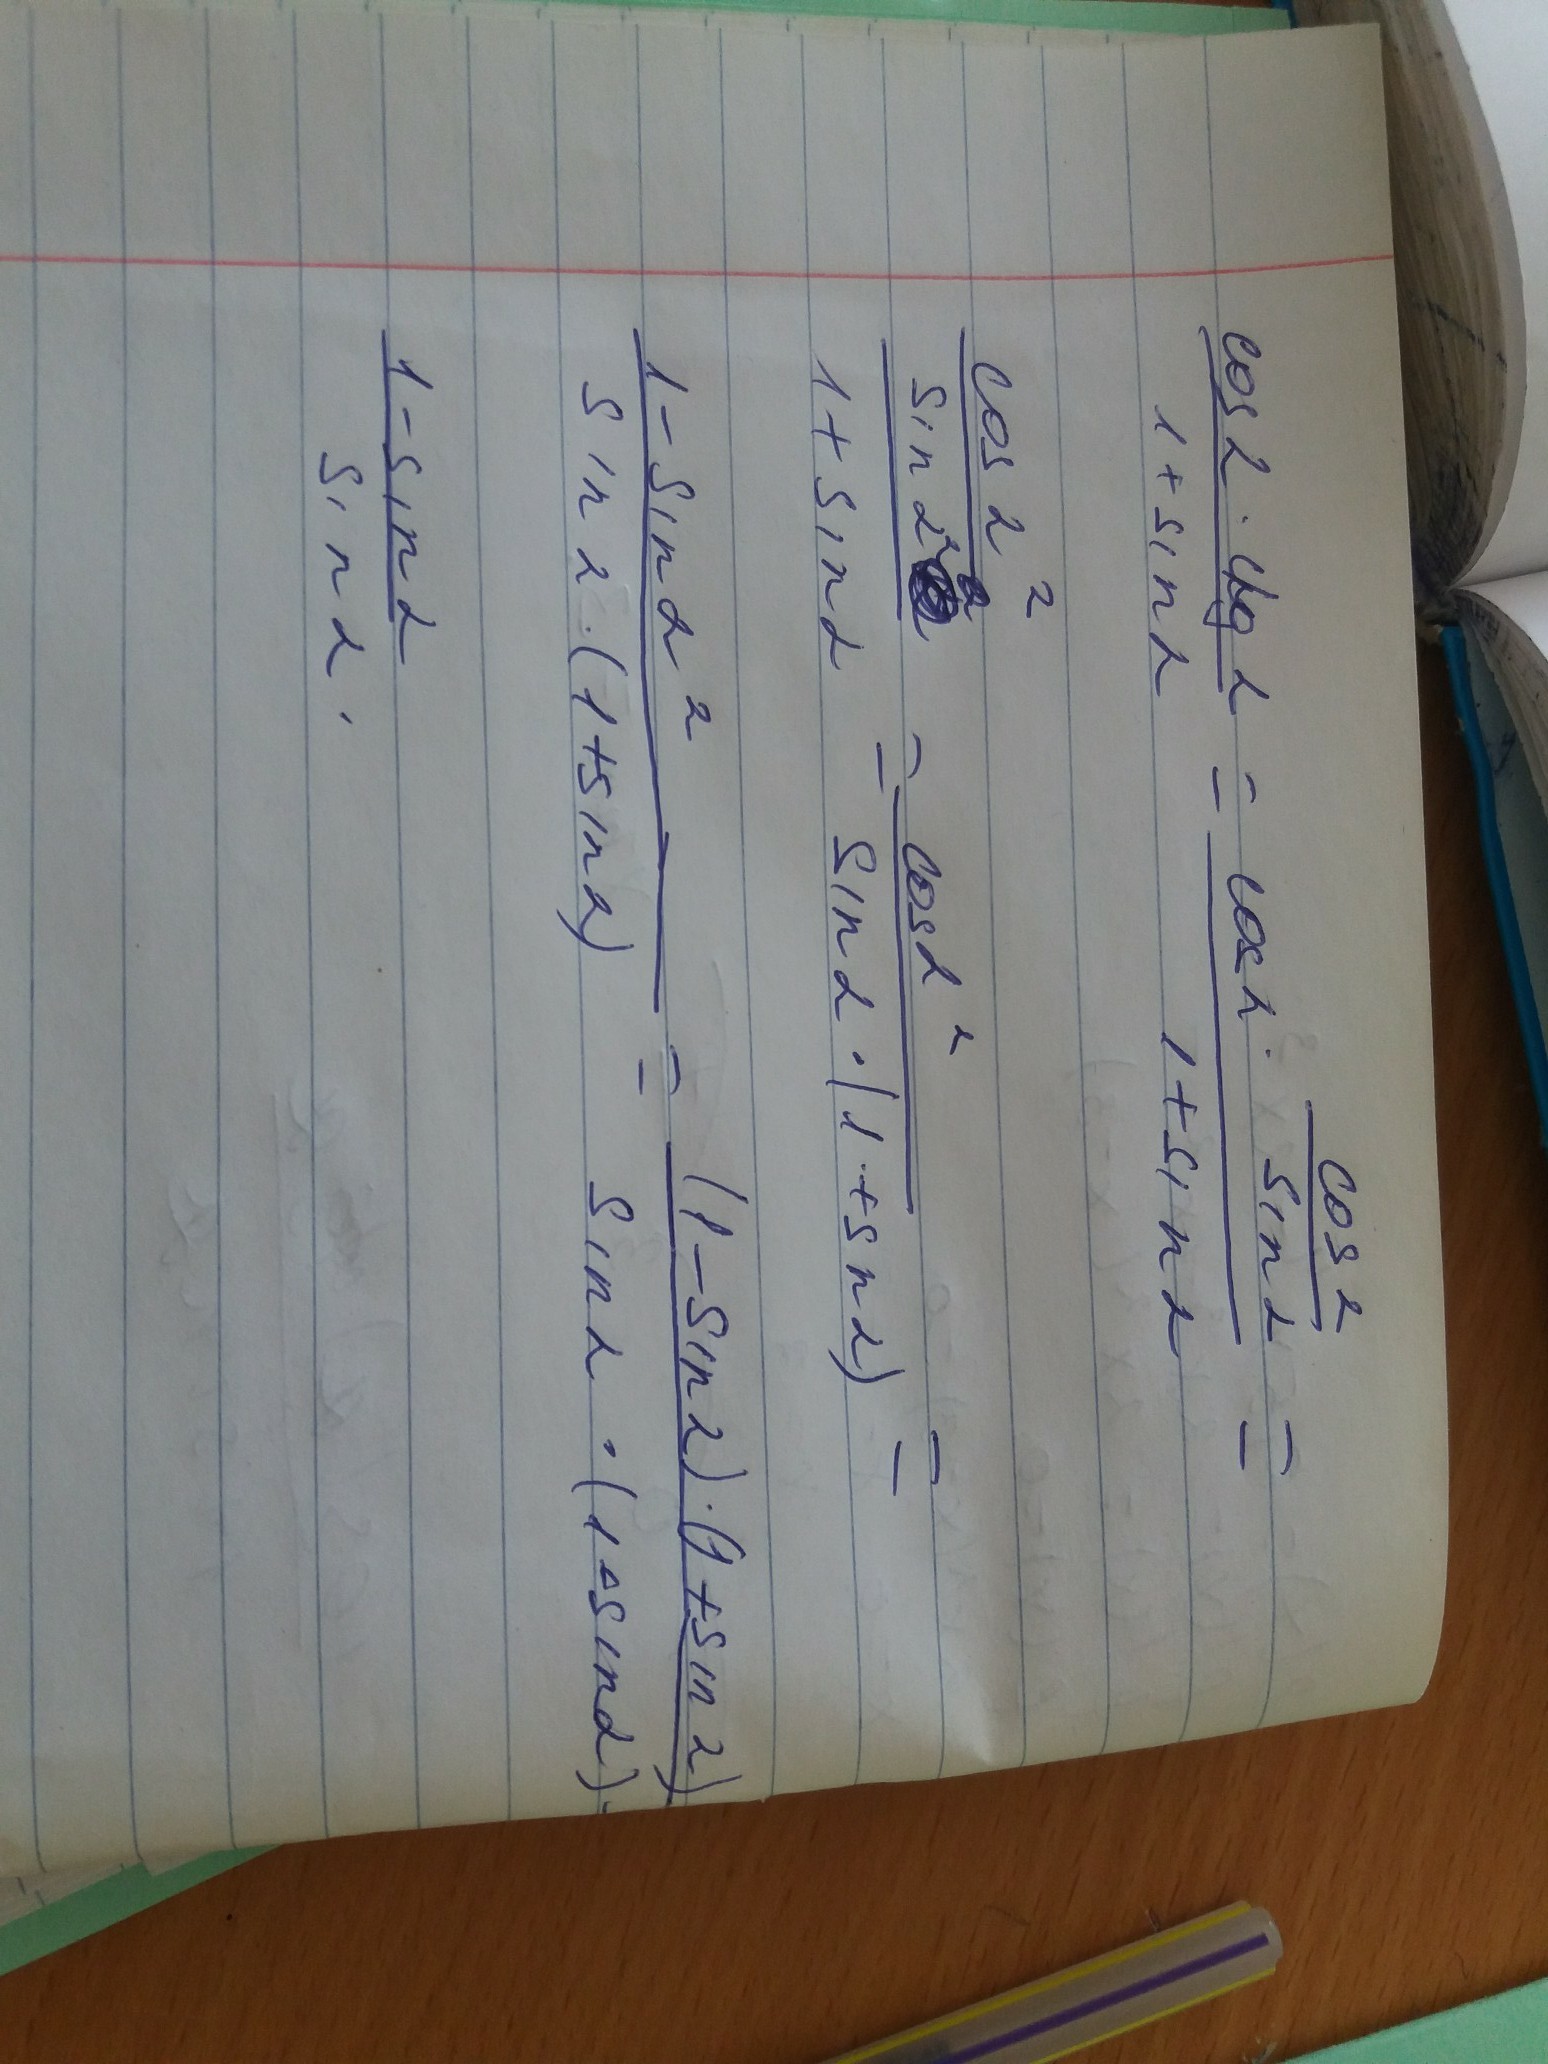 cos α · ctg α / 1 + sin α = cos α · cos α / sin α / 1 + sin α =
cos α² / sin α² / 1 + sin α = cos α² / sin α · (1 + sin α) =
1 - sin α² / sin α · (1 + sin α) = (1 - sin α) · (1 + sin α) / sin α · (1 + sin α) =
1 - sin α / sin α .